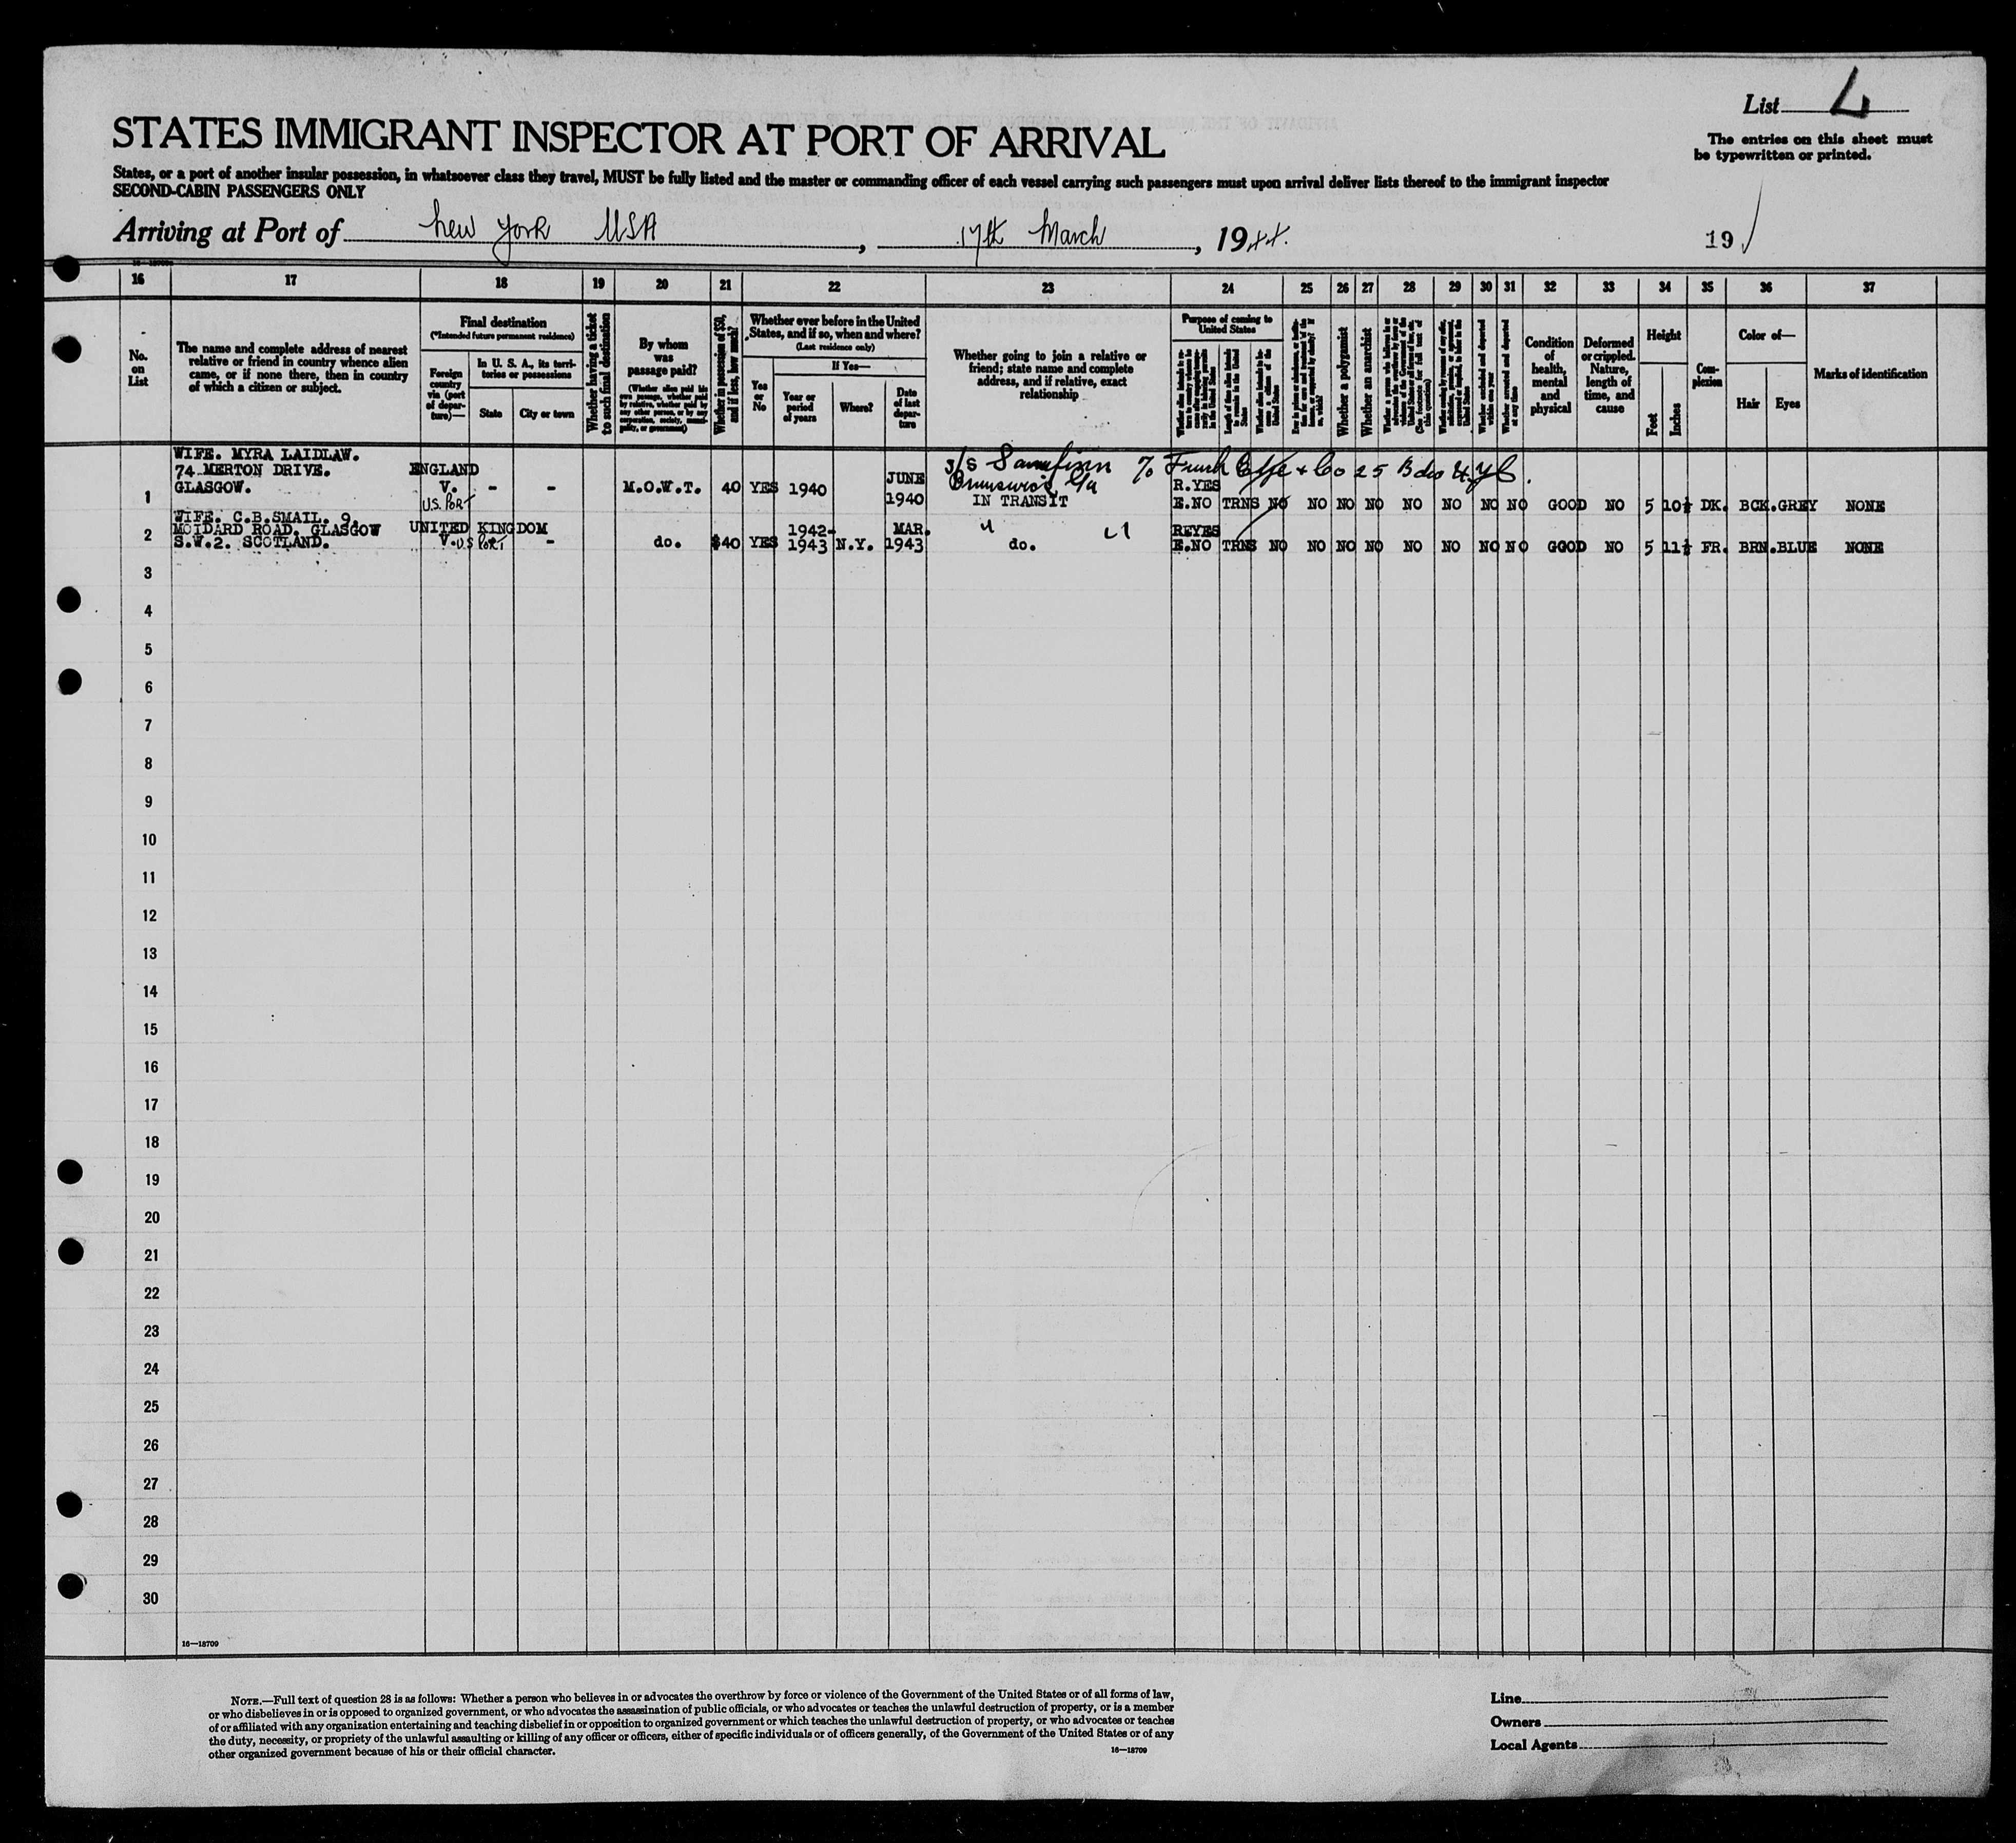 List 4
STATES IMMIGRANT INSPECTOR AT PORT OF ARRIVAL
The entries on this sheet must
be typewritten or printed.
States, or a port of another insular possession, in whatsoever class they travel, MUST be fully listed and the master or commanding officer of each vessel carrying such passengers must upon arrival deliver lists thereof to the immigrant inspector
SECOND-CABIN PASSENGERS ONLY
Arriving at Port of New York USA, 17th March, 1944. 19
16 17 18 19 20 21 22 23 24 25 26 27 28 29 30 31 32 33 34 35 36 37
No.
on
List
The name and complete address of nearest
relative or friend in country whence alien
came, or if none there, then in country
of which a citizen or subject.
Final destination
(*Intended future permanent residence)
Foreign
country
via (port
of depar-
ture)—
In U. S. A., its terri-
tories or possessions
State
City or town
Whether having a ticket
to such final destination
By whom
was
passage paid?
(Whether alien paid his
own passage, whether paid
by relative, whether paid by
any other person, or by any
corporation, society, munici-
pality, or government)
Whether in possession of $50,
and if less, how much?
Whether ever before in the United
States, and if so, when and where?
(Last residence only)
Yes
or
No
If Yes—
Year or
period
of years
Where?
Date
of last
depar-
ture
Whether going to join a relative or
friend; state name and complete
address, and if relative, exact
relationship
Purpose of coming to
United States
Length of time alien intends
to remain in the United
States
Whether a polygamist
Whether an anarchist
(See footnote for full text of
this question)
Whether arrested and deported
at any time
Condition
of
health,
mental
and
physical
Deformed
or crippled.
Nature,
length of
time, and
cause
Height
Feet
Inches
Com-
plexion
Color of—
Hair
Eyes
Marks of identification
WIFE. MYRA LAIDLAW.
74 MERTON DRIVE.
GLASGOW.
1 ENGLAND V. U.S. PORT - - M.O.W.T. 40 YES 1940 JUNE 1940
Brunswick Ga
& Co 25
IN TRANSIT
R.YES
E.NO TRNS NO NO NO NO NO NO NO NO GOOD NO 5 10½ DK. BCK. GREY NONE
WIFE. C.B.SMAIL. 9,
MOIDARD ROAD. GLASGOW
S.W.2. SCOTLAND.
2 UNITED KINGDOM V. US PORT - do. $40 YES 1942-1943 N.Y. MAR. 1943
" "
do.
REYES
E.NO TRNS NO NO NO NO NO NO NO NO GOOD NO 5 11½ FR. BRN. BLUE NONE
3
4
5
6
7
8
9
10
11
12
13
14
15
16
17
18
19
20
21
22
23
24
25
26
27
28
29
30
16—18709
NOTE.—Full text of question 28 is as follows: Whether a person who believes in or advocates the overthrow by force or violence of the Government of the United States or of all forms of law,
or who disbelieves in or is opposed to organized government, or who advocates the assassination of public officials, or who advocates or teaches the unlawful destruction of property, or is a member
of or affiliated with any organization entertaining and teaching disbelief in or opposition to organized government or which teaches the unlawful destruction of property, or who advocates or teaches
the duty, necessity, or propriety of the unlawful assaulting or killing of any officer or officers, either of specific individuals or of officers generally, of the Government of the United States or of any
other organized government because of his or their official character.
16—18709
Line
Owners
Local Agents